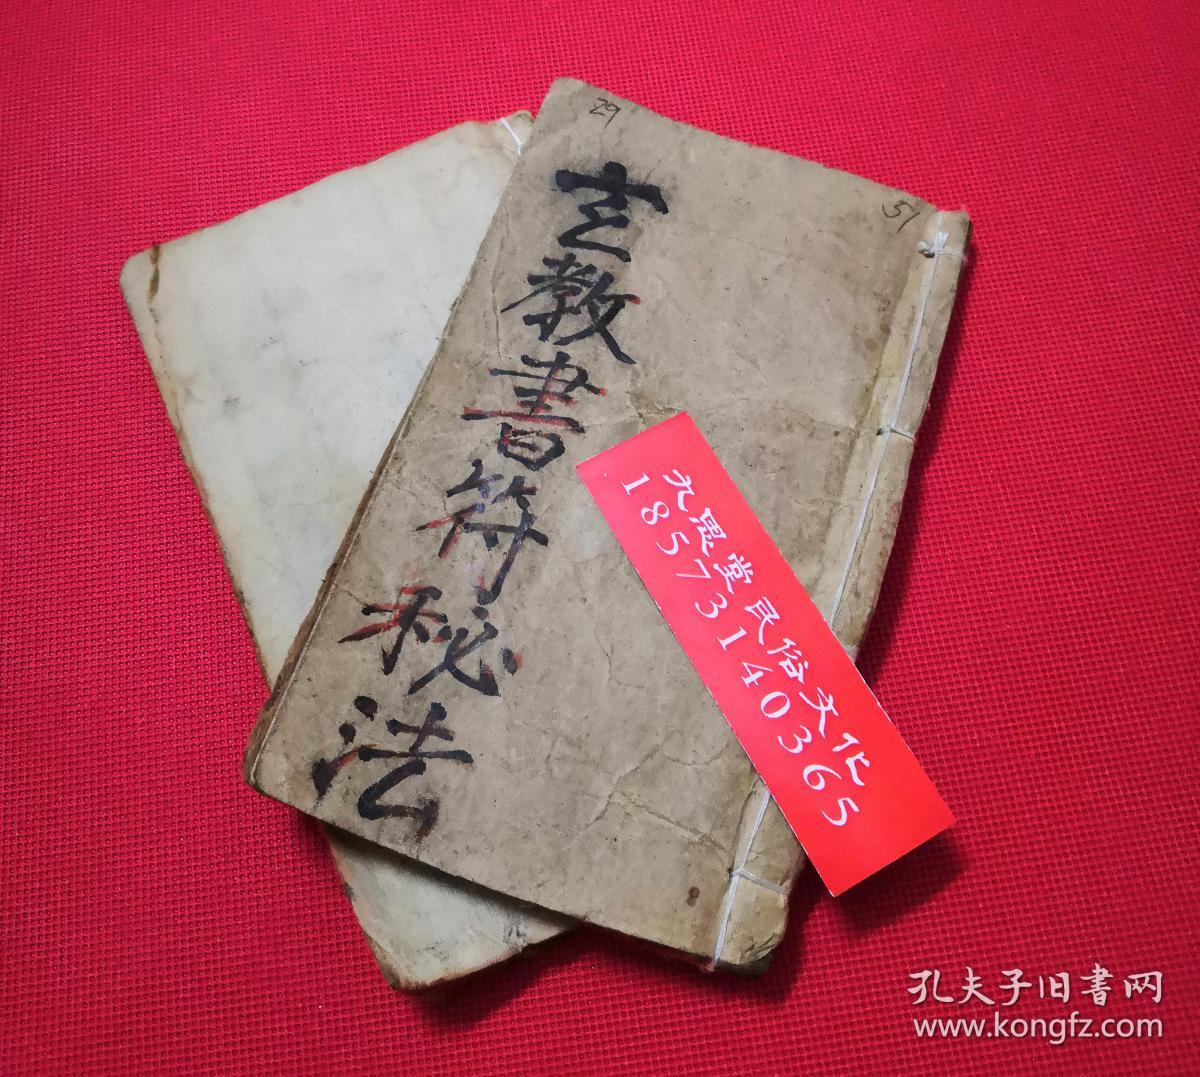 29
51
玄教書符秘法
九思堂民俗文化
18573140365
孔夫子旧书网
www.kongfz.com